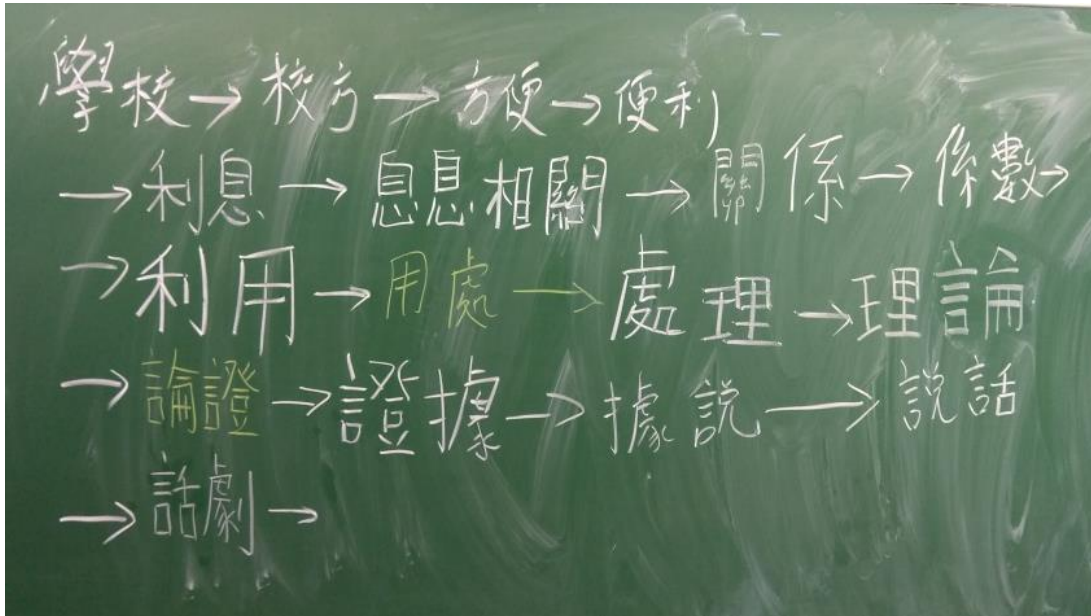 學校→校方→方便→便利
→利息→息息相關→關係→係數→
→利用→用處→處理→理論
→論證→證據→據説→説話
→話劇→